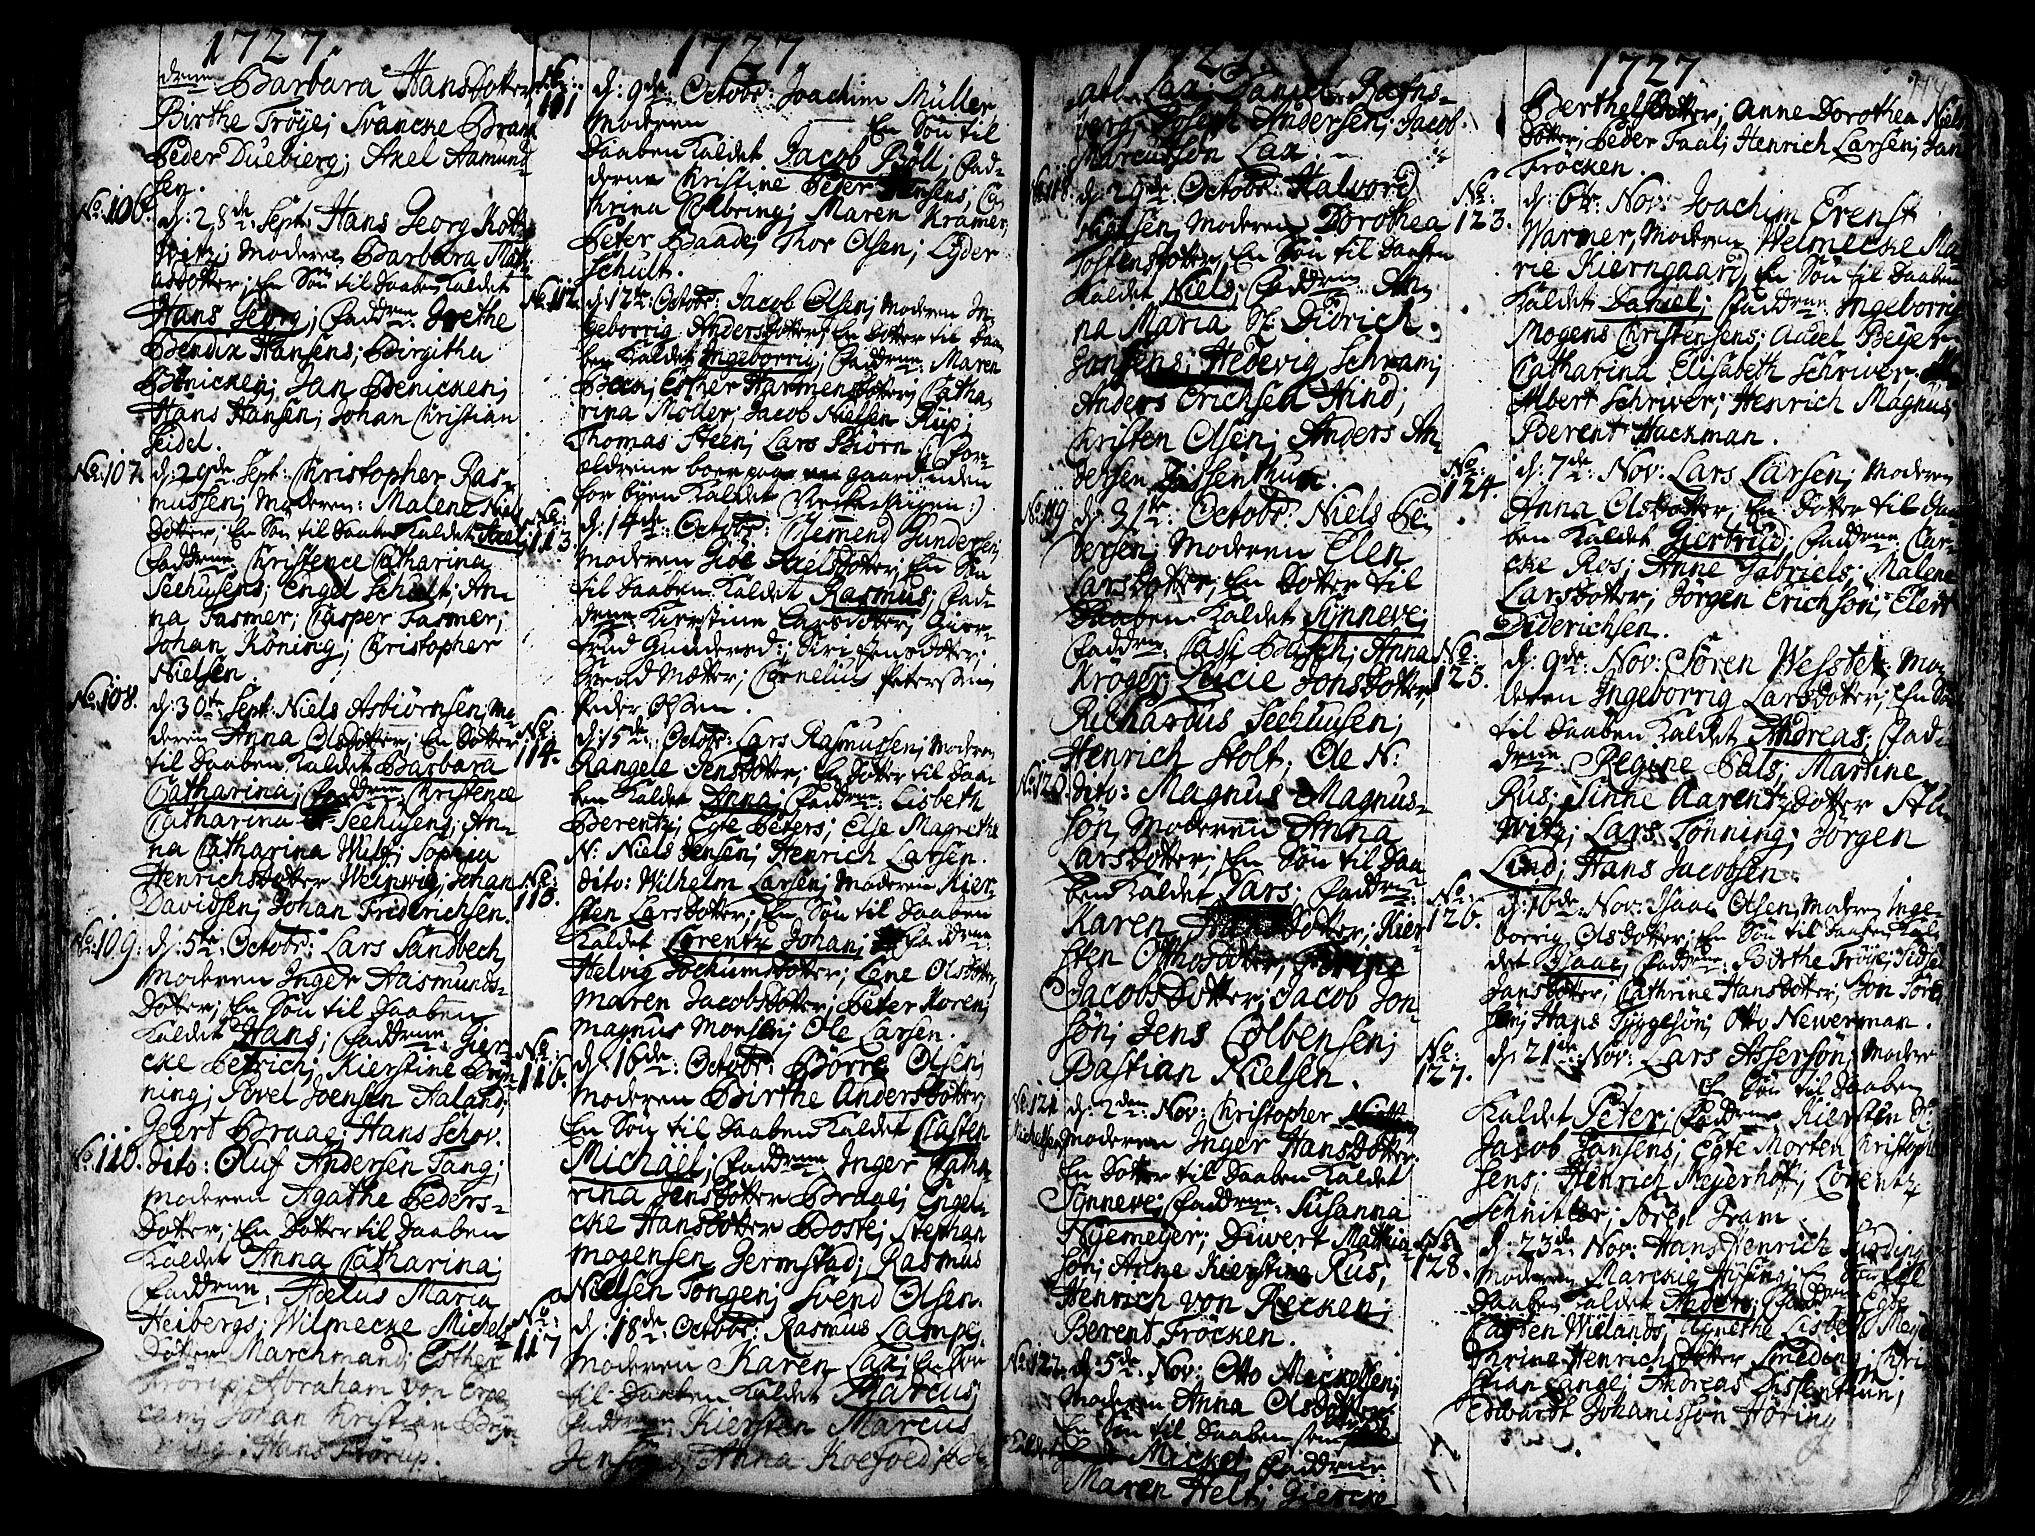 1727.
drene Barbara Hansdotter
Birthe Tröye; Svancke Braa
Peder Duebierg; Axel Aamund
sen.
No: 106. d: 28de Sept: Hans Georg Kott
witz; Moderen Barbara Mat
iasdotter; En Sön til Daaben Kaldet
Hans Georg; Faddrene Grethe
Bendix Hansens; Birgitha
Bönicken; Jan Benicken;
Hans Hansen; Johan Christian
Seidel.
No: 107. d: 29de Sept: Christopher Ras-
mussen; Moderen: Malene Niels
dotter; En Sön til Daaben Kaldet Axel;
Faddrene Christence Catharina
Seehusens; Engel Schult; An-
na Fasmer; Casper Fasmer;
Johan Köning; Christopher
Nielsen.
No: 108. d: 30te Sept: Niels Asbiörnsen; Mo
deren Anna Olsdotter; En Dotter
til Daaben Kaldet Barbara
Catharina; Faddrene Christence
Catharina Seehusens; An-
na Catharina Wulf; Sophia
Henrichsdotter Weinwig; Johan
Davidsen; Johan Friderichsen.
No: 109: d: 5te Octobr: Lars Sandbech
Moderen Inger Aasmunds-
dotter; En Sön til Daaben
Kaldet Hans; Faddrene Gier-
cke Petrich; Kierstine Bröy-
ning; Povel Joensen Aaland;
Geert Braae; Hans Schov.
No: 110. dito: Oluf Andersen Tang;
Moderen Agathe Peders-
dotter; En Dotter til Daaben
Kaldet Anna Catharina;
Faddrene: Adelus Maria
Heibergs; Wilmecke Michels
dotter Marchmand; Esther
Frörup; Abraham von Erpe
cam; Johan Christian Bröy-
ning; Hans Frörup.
1727
No: 111 d: 9de Octobr: Joachim Müller,
Moderen En Sön til
Daaben Kaldet Jacob Böll; Fad-
drene Christine Peter Jensens; Ca
trina Colbring; Maren Kramer;
Peter Baade; Thor Olsen; Lyder
Schult.
No: 112. d: 12te Octobr: Jacob Olsen; Moderen In
geborrig Andersdotter; En Dotter til Daa
ben Kaldet Ingeborrig; Faddrene: Maren
Beck; Esther Harmensdotter; Catha
rina Moder; Jacob Nielsen Riip;
Thomas Steen; Lars Biörn (: For-
ældrene boer paa een gaard uden
for byen Kaldet :)
No: 113 d: 14de Octobr: Clemend Gundersen;
Moderen Giöe Nielsdotter; En Sön
til Daaben Kaldet Rasmus; Fad-
drene Kierstine Larsdotter; Gier-
trud Gundered; Siri Jensdotter;
Svend Mætter; Cornelius Petersen
Peder Olsen.
No: 114. d: 15de Octobr: Lars Rasmussen; Moderen
Rangele Jensdotter; En Dotter til Daa
ben Kaldet Anna; Faddrene: Lisbeth
Berentz; Egte Peters; Else Magrethe
N: Niels Jensen; Henrich Larsen.
No: 115. dito: Wilhelm Larsen; Moderen Kier
sten Larsdotter; En Sön til Daaben
Kaldet Lorentz Johan; Faddrene:
Helvig Jochumsdotter; Lene Olsdotter,
Maren Jacobsdotter; Peter Koren;
Magnus Monsen; Ole Larsen.
No: 116. d: 16de: Octobr: Börre Olsen;
Moderen Birthe Andersdotter
En Sön til Daaben Kaldet Casten
Michael; Faddrene Inger Catha
rina Jensdotter Braae; Engel
cke Hansdotter Böste; Stephan
Mogensen Jermstad; Rasmus
Nielsen Tongen; Svend Olsen.
No: 117 d: 18de: Octobr: Rasmus Lampe;
Moderen Karen Lax; En Sön
til Daaben Kaldet Marcus;
Faddrene Kiersten Marcus
Jensöns; Anna Koefoed;
1727
Lax; Daniel Raths-
berg; Joseph Andersen; Jacob
Marcussön Lax.
No: 118. d: 29de Octobr: Halvord
Nielsen, Moderen Dorothea
Tostensdotter, En Sön til Daaben
Kaldet Niels; Faddrene: An
na Maria Sl: Didrich
Jansens; Hedevig Schram;
Anders Erichsen Hind;
Christen Olsen; Anders An
dersen Dissenthun.
No: 119 d: 31te: Octobr: Niels Pe
dersen; Moderen Elen
Larsdotter; En Dotter til
Daaben Kaldet Synneve;
Faddrene: Basch; Anna
Kröger; Lucie Jonsdotter;
Richardus Seehusen;
Henrich Stolt; Ole N:
No: 120. dito: Magnus Magnus-
sön, Moderen Anna
Larsdotter; En Sön til Daa
ben Kaldet Lars; Faddrene
Karen Hansdotter; Kier
sten Otthosdotter;
Jacobsdotter; Jacob Jon
sön; Jens Colbensen;
Bastian Nielsen.
No: 121 d: 2den: Nov: Christopher
Michelsen
Moderen Inger Hansdotter
En Dotter til Daaben Kaldet
Synneve; Faddrene: Susanna
Nyemeyer; Divert Mathia
sön; Anne Kierstina Rus;
Henrich von Recken;
Berent Fröcken.
No: 122. d: 5de Nov: Otto Mickelsen;
Moderen Anna Olsdotter
En Sön til Daaben som
Kaldet Mickel; Faddrene:
Maren Helt; Giercke
1727.
Berthelsdotter; Anne Dorothea Niels
dotter; Peder Faal; Henrich Larsen; Jan
Frocken.
No: 123. d: 6te: Nov: Joachim Ernst
Warner, Moderen Welmecke Ma
rie Kierngaard, En Sön til Daaben
Kaldet Daniel; Faddrene: Ingeborrig
Mogens Christensens; Adel Beyer
Catharina Elisabeth Schriver;
Albert Schriver; Henrich Magnus;
Berent Hackman.
No: 124. d: 7de: Nov: Lars Larsen; Moderen
Anna Olsdotter; En Dotter til Daa
ben Kaldet Giertrud; Faddrene: Ger-
cke Ros; Anne Gabriels; Malene
Larsdotter; Jörgen Erichsön; Elert
Diderichsen.
No: 125. d: 9de: Nov: Sören Wesstel; Mo
deren Ingeborrig Larsdotter; En Sön
til Daaben Kaldet Andreas; Fad-
drene: Regine Pals; Martine
Rus; Sinne Aarentzdotter
witz; Lars Tönning; Jörgen
Lind; Hans Jacobsen.
No: 126. d: 16de: Nov: Isaac Olsen, Moderen Inge-
borrig Olsdotter; En Sön til Daaben Kal
det Isaac; Faddrene: Birthe Tröye; Sidse
Jansdotter; Cathrine Hansdotter; Jon Sörn
sen; Hans Tyggesön; Otto Newerman.
No: 127. d: 21de: Nov: Lars Assersön; Moderen
En Sön til Daaben
Kaldet Peter; Faddrene Kiersten Sl:
Jacob Jansens; Egte Morten Christoph
sens; Henrich Meyerhof; Lorentz
Schnitler; Sören Fram
No: 128. d: 23de Nov: Hans Henrich
Moderen Marckie Hysing; En Sön til
Daaben Kaldet Anders; Faddrene Egte
Casten Wielands, Agnethe Lisbeth Meyer
Thrine Henrichsdotter Smeding; Chri
stian Lange; Andreas Dissentun;
Edwardt Johanissön Höring